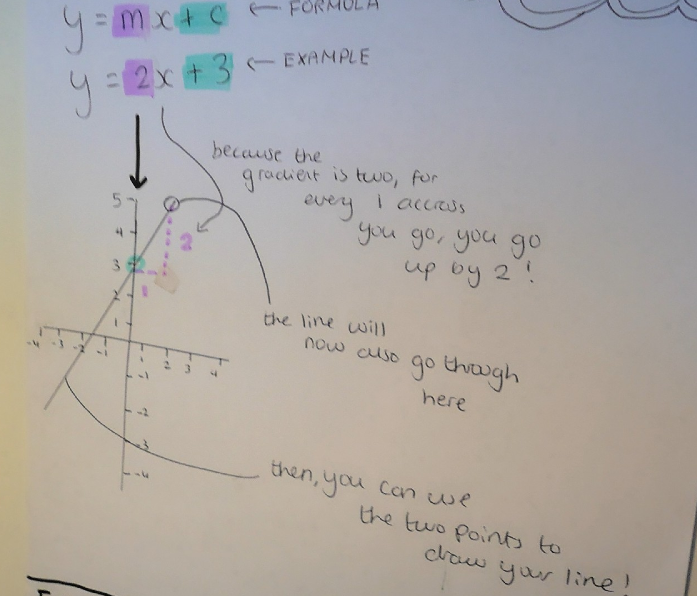 y = mx + c ← FORMULA
y = 2x + 3 ← EXAMPLE
because the
gradient is two, for
every 1 accross
you go, you go
up by 2!
5
4
3
2
1
2
1
-4 -3 -2 -1 1 2 3 4
-1
-2
-3
-4
the line will
now also go through
here
then, you can use
the two points to
draw your line!